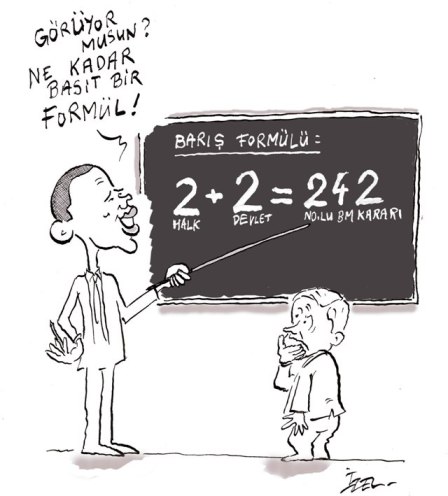 GÖRÜYOR
MUSUN?
NE KADAR
BASİT BİR
FORMÜL!
BARIŞ FORMÜLÜ:
2 + 2 = 242
HALK DEVLET NO.LU BM KARARI
İZEL